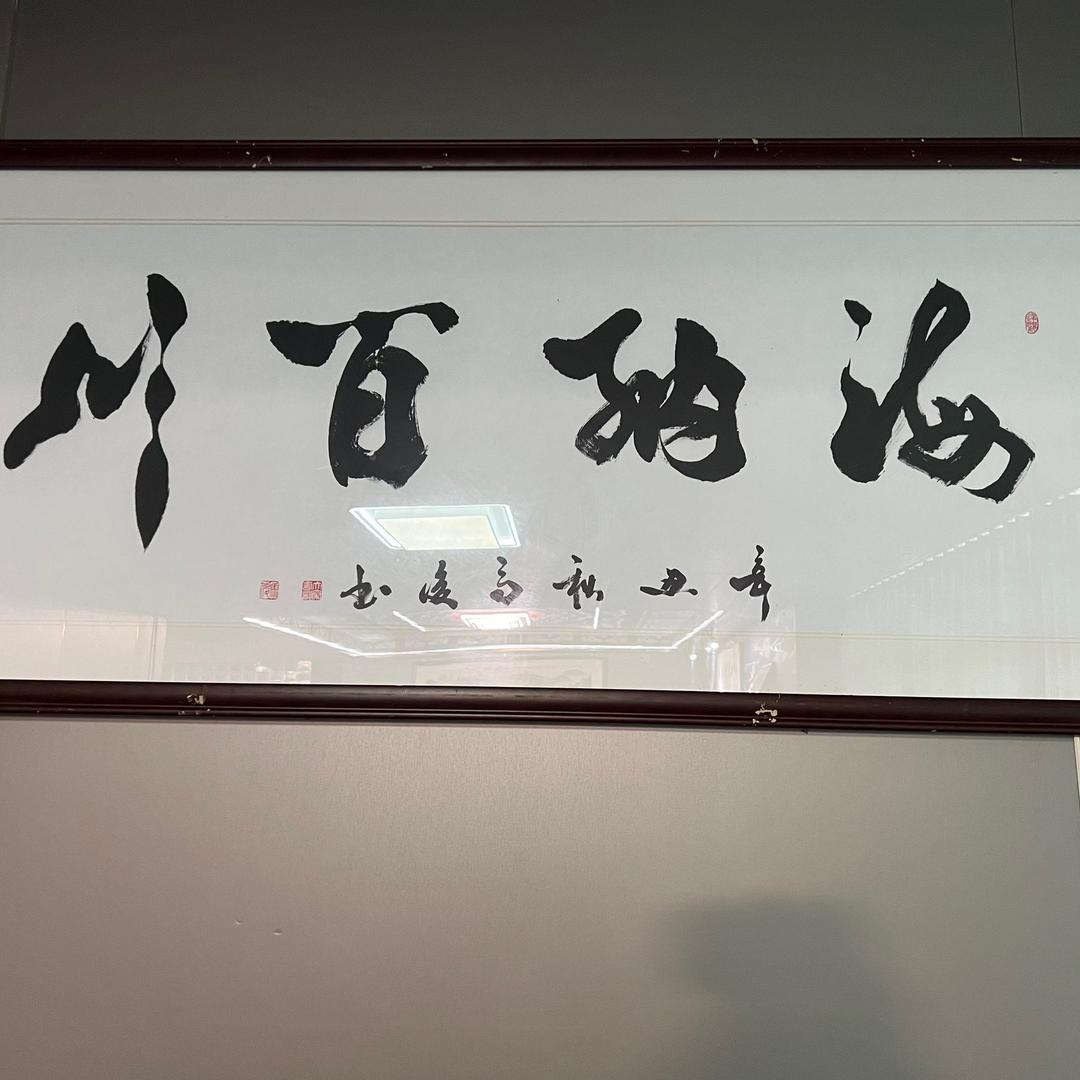 海纳百川
辛丑秋月俊书